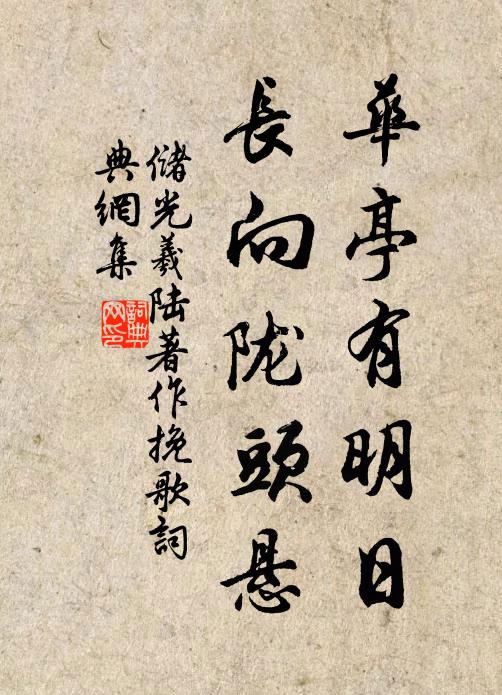 華亭有明日
長向陇頭悬
儲光羲陆著作挽歌詞
典網集
詞典網印